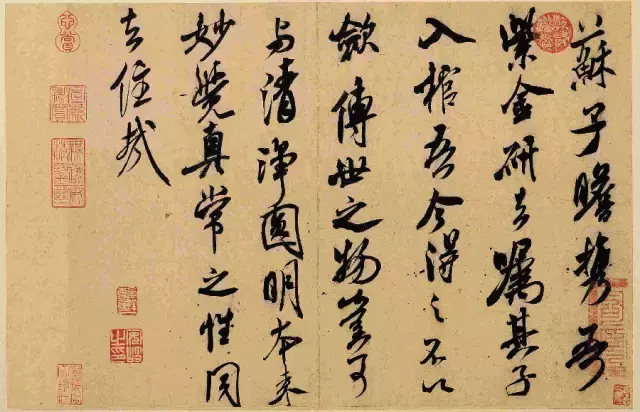 蘇子瞻携吾
紫金研去嘱其子
入棺吾今得之不以
歛傳世之物豈可
与清淨圓明本来
妙覺真常之性同
去住㢤